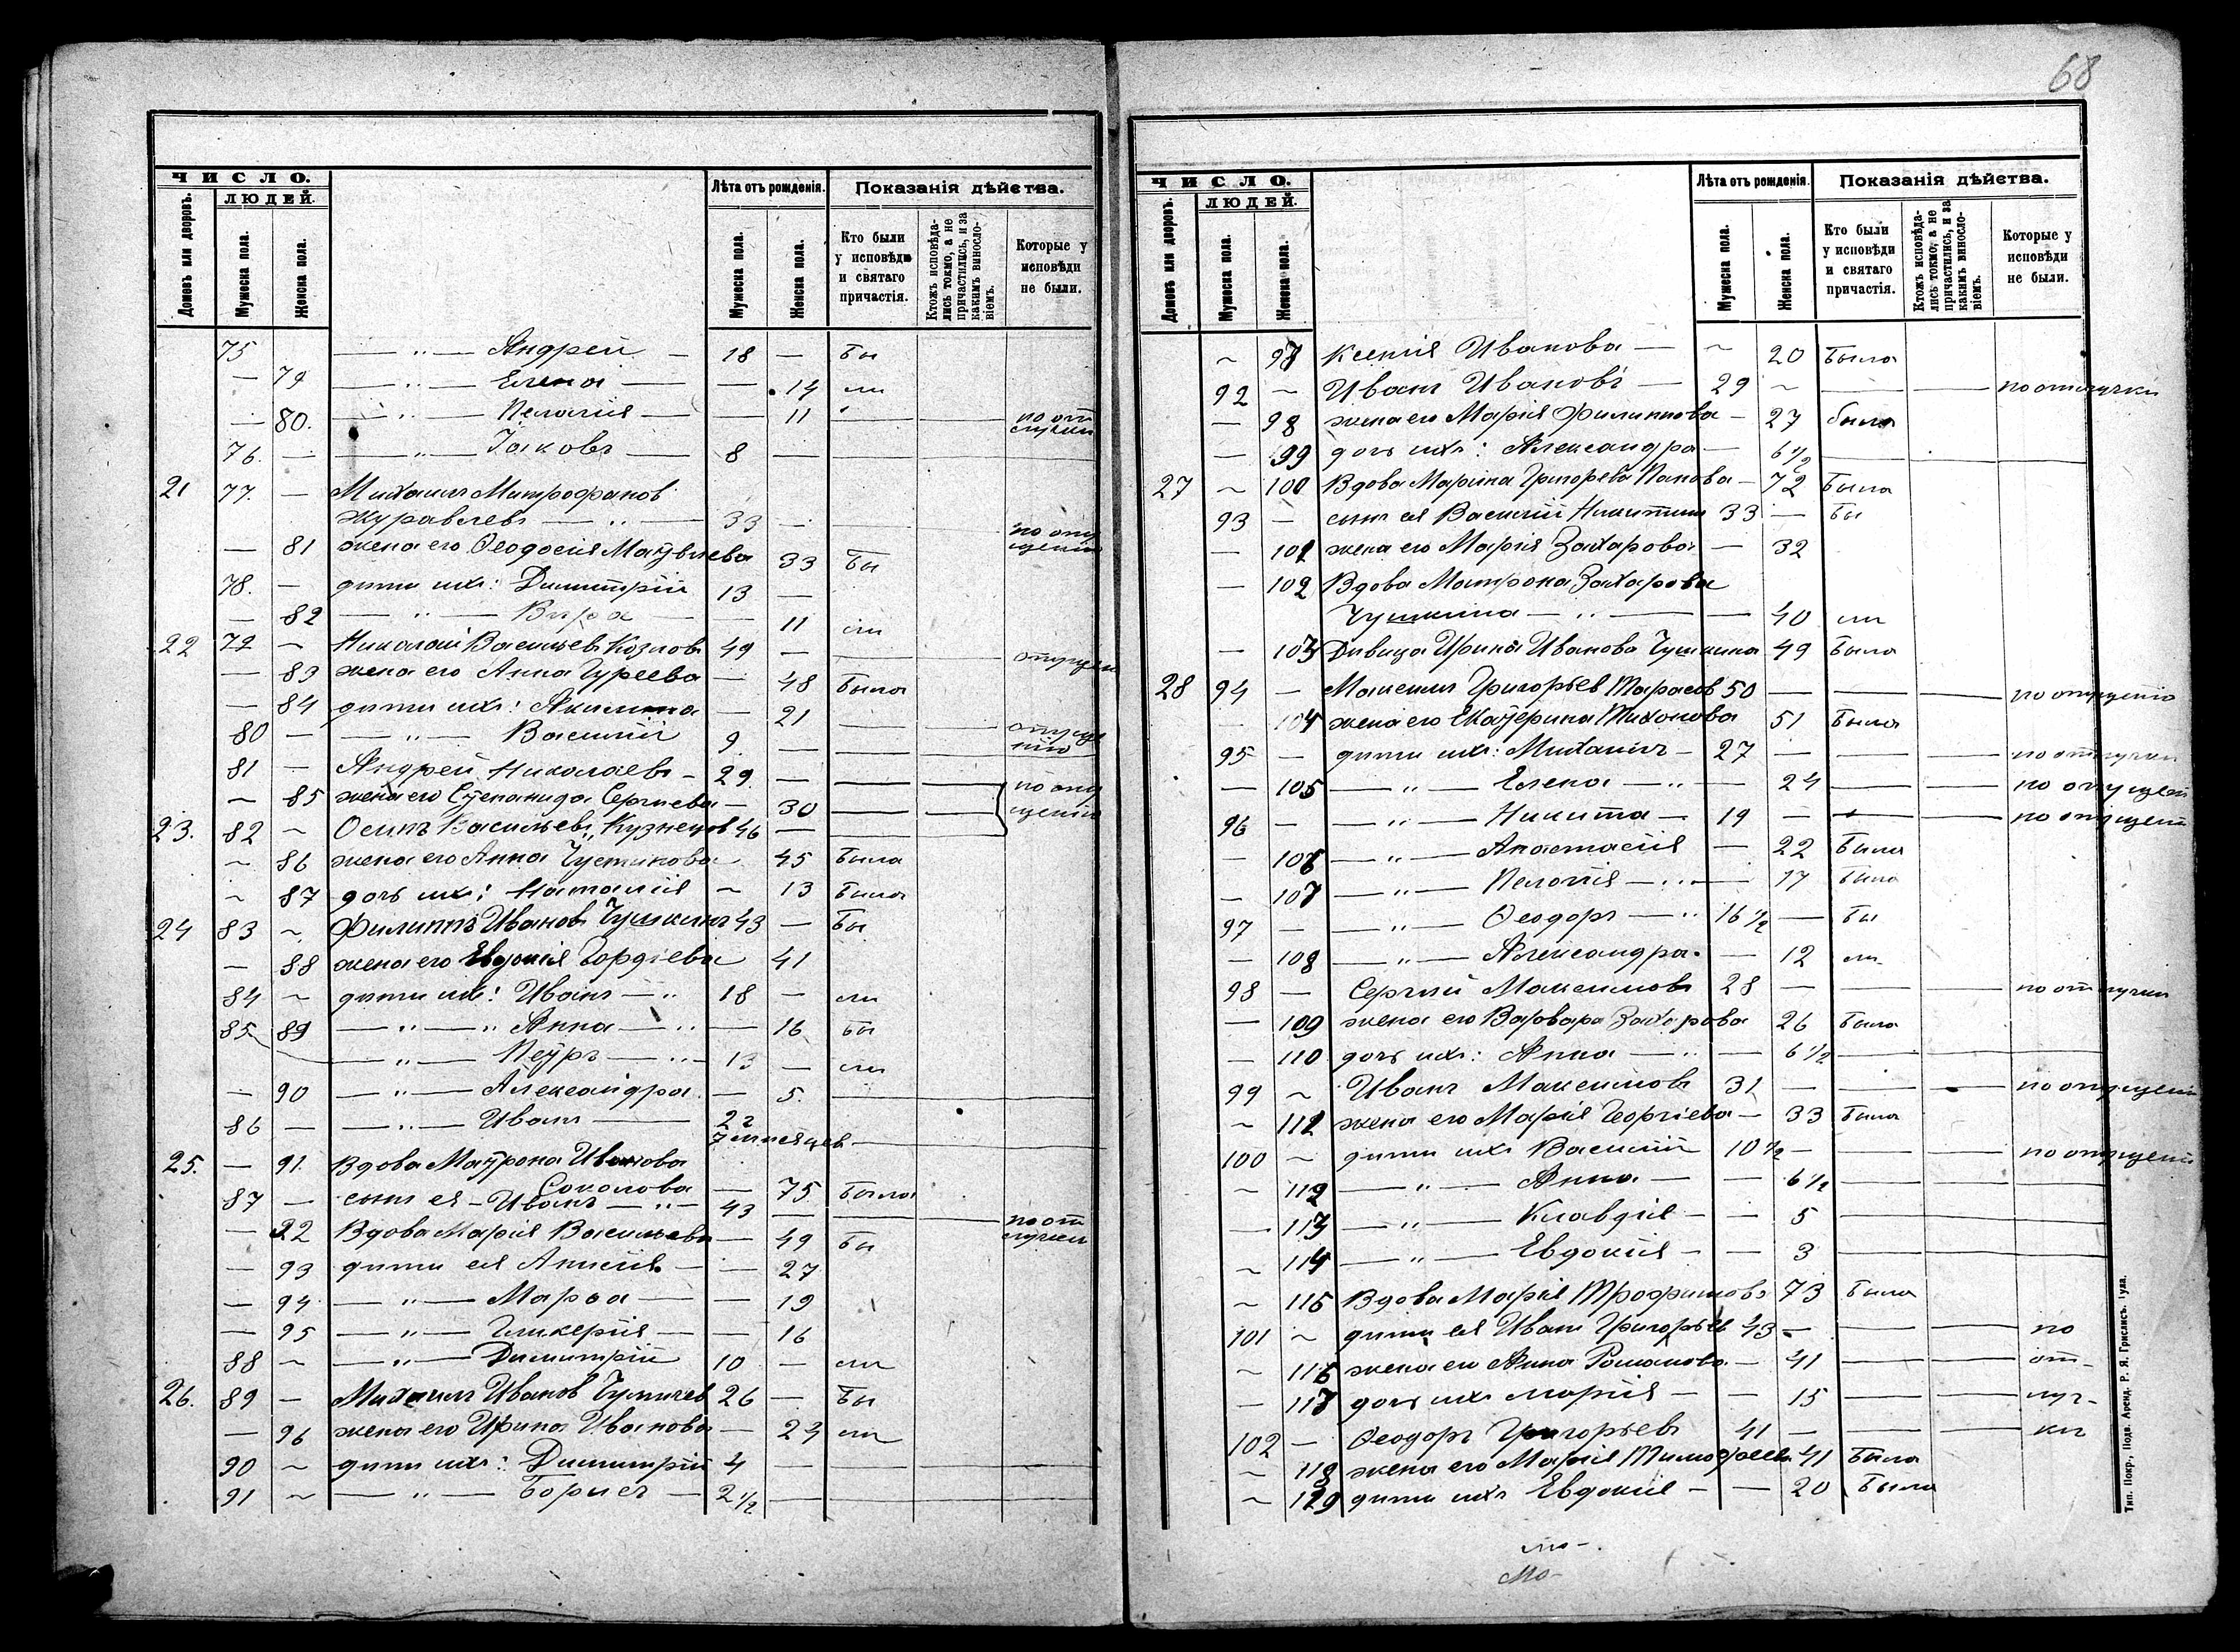 68
ЧИСЛО.
ЛЮДЕЙ.
Домовъ или дворовъ.
Мужеска пола.
Женска пола.
Лѣта отъ рожденія.
Мужеска пола.
Женска пола.
Показанія дѣйства.
Кто были у исповѣди и святаго причастія.
Ктожъ исповѣдались токмо, а не причастились, и за какимъ винословіемъ.
Которые у исповѣди не были.
75 — " — Андрей — 18 — Бы
— 79 — " — Елена — — 14 ли
— 80. — " — Пелагія — — 11 — — по от
лучки
76. — — " — Іаковъ — 8 — — — —
21 77. — Михаилъ Митрофанов
Журавлевъ — " — 33 — — — по опу
щенію
— 81 жена его Ѳеодосія Матвѣева 33 Бы
78. — дѣти ихъ: Димитрій 13 —
— 82 — " — Вѣра — — 11 ли
22 79 — Николай Васильевъ Козловъ 49 — — — опущен
— 83 жена его Анна Гуреева — 48 Была
— 84 дѣти ихъ: Акилина — 21 — —
80 — — " — Василій 9. — — — опуще
нію
81 — Андрей Николаевъ — 29 — — — по опу
— 85 жена его Степанида Сергиева — 30 — — щенію
23. 82 — Осипъ Васильевъ Кузнецов 46 — — —
— 86 жена его Анна Густинова 45 Была
— 87 дочь ихъ: Наталія — 13 Была
24 83 — Филиппъ Иванов Чушкинъ 43 — Бы
— 88 жена его Евдокія Гордіева 41
84 — дѣти ихъ: Иванъ — " 18 — ли
85 89 — " — " Анна — " — 16 Бы
— " — Петръ — " — 13 — ли
— 90 — " — Александра — 5. — — —
86 — — " — Иванъ — 2 г
7 мѣсяцев — — —
25. — 91. Вдова Матрона Иванова
Соколова — 75 Была
87 — сынъ ея — Иванъ — " — 43 — — — по от
лучки
— 92 Вдова Марія Васильева — 49 Бы
— 93 дѣти ея Анисія — — 27
— 94 — " — Марѳа — — 19
— 95 — " — Гликерія — — 16
88 — — " — Димитрій 10 — ли
26. 89 — Михаилъ Иванов 26 — Бы
— 96 жена его Ирина Иванова — 24 ли
90 — дѣти ихъ: Димитрій 4 — — —
91 — — " — Борисъ — 2 1/2 — — —
ЧИСЛО.
ЛЮДЕЙ.
Домовъ или дворовъ.
Мужеска пола.
Женска пола.
Лѣта отъ рожденія.
Мужеска пола.
Женска пола.
Показанія дѣйства.
Кто были у исповѣди и святаго причастія.
Ктожъ исповѣдались токмо, а не причастились, и за какимъ винословіемъ.
Которые у исповѣди не были.
— 97 Ксенія Иванова — — 20 Была
92 — Иванъ Ивановъ — 29 — — — по отлучки
— 98 жена его Марія Филиппова — 27 была
— 99 дочь ихъ: Александра — 6 1/2 — — —
27 — 100 Вдова Марина Григорева Панова — 72 Была
93 — сынъ ея Василій Никитинъ 33 — Бы
— 101 жена его Марія Захарова — 32
— 102 Вдова Матрона Захарова
Чушкина — " — — 40 ли
— 103 Дѣвица Ирина Иванова Чушкина 49 Была
28 94 — Максимъ Григорьев Тарасов 50 — — — по опущенію
— 104 жена его Екатерина Тихонова 51 Была
95 — дѣти ихъ: Михаилъ — 27 — — — по отлучки
— 105 — " — Елена — " — 24 — — по опущен
96 — — " — Никита — 19 — — — по опущен
— 106 — " — Анастасія — 22 Была
— 107 — " — Пелагія — " — 17 Была
97 — — " — Ѳеодоръ — " 16 1/2 — Бы
— 108 — " — Александра. — 12 ли
98 — Сергий Максимовъ 28 — — — по отлучки
— 109 жена его Варвара Захарова 26 Была
— 110 дочь ихъ: Анна — " — 6 1/2 — — —
99 — Иванъ Максимовъ 31 — — — по опущен
— 111 жена его Марія Георгіева — 33 Была
100 — дѣти ихъ Василій 10 1/2 — — — по опущен
— 112 — " — Анна — — 6 1/2 — — —
— 113 — " — Клавдія — — 5 — — —
— 114 — " — Евдокія — — 3 — — —
— 115 Вдова Марія Трофимова 73 Была
101 — дѣти ея Иванъ Григорьев 43 — — — по
— 116 жена его Анна Романова — 41 — — от-
— 117 дочь ихъ Марія — — 15 — — луч-
102 — Ѳеодоръ Григорьевъ 41 — — — ки
— 118 жена его Марія Тимофеева 41 Была
— 119 дѣти ихъ Евдокія — — 20 Была
Тип. Покр., Подв. Аренд. Р. Я. Грисансъ. Тула.